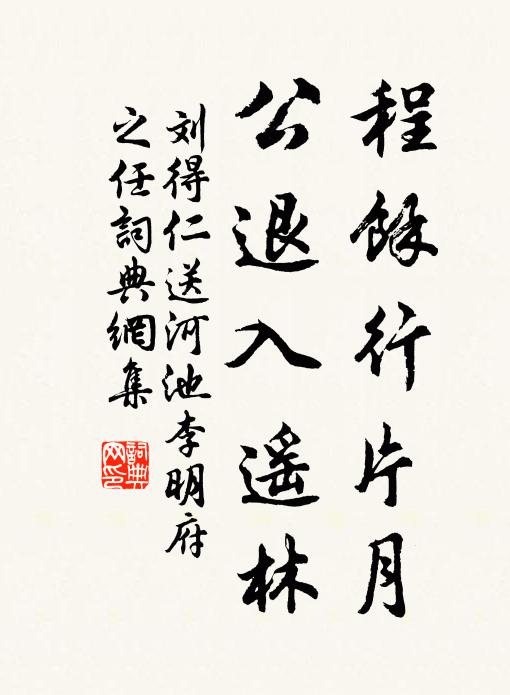 程餘行片月
公退入遥林
刘得仁送河池李明府
之任詞典網集
詞典網印